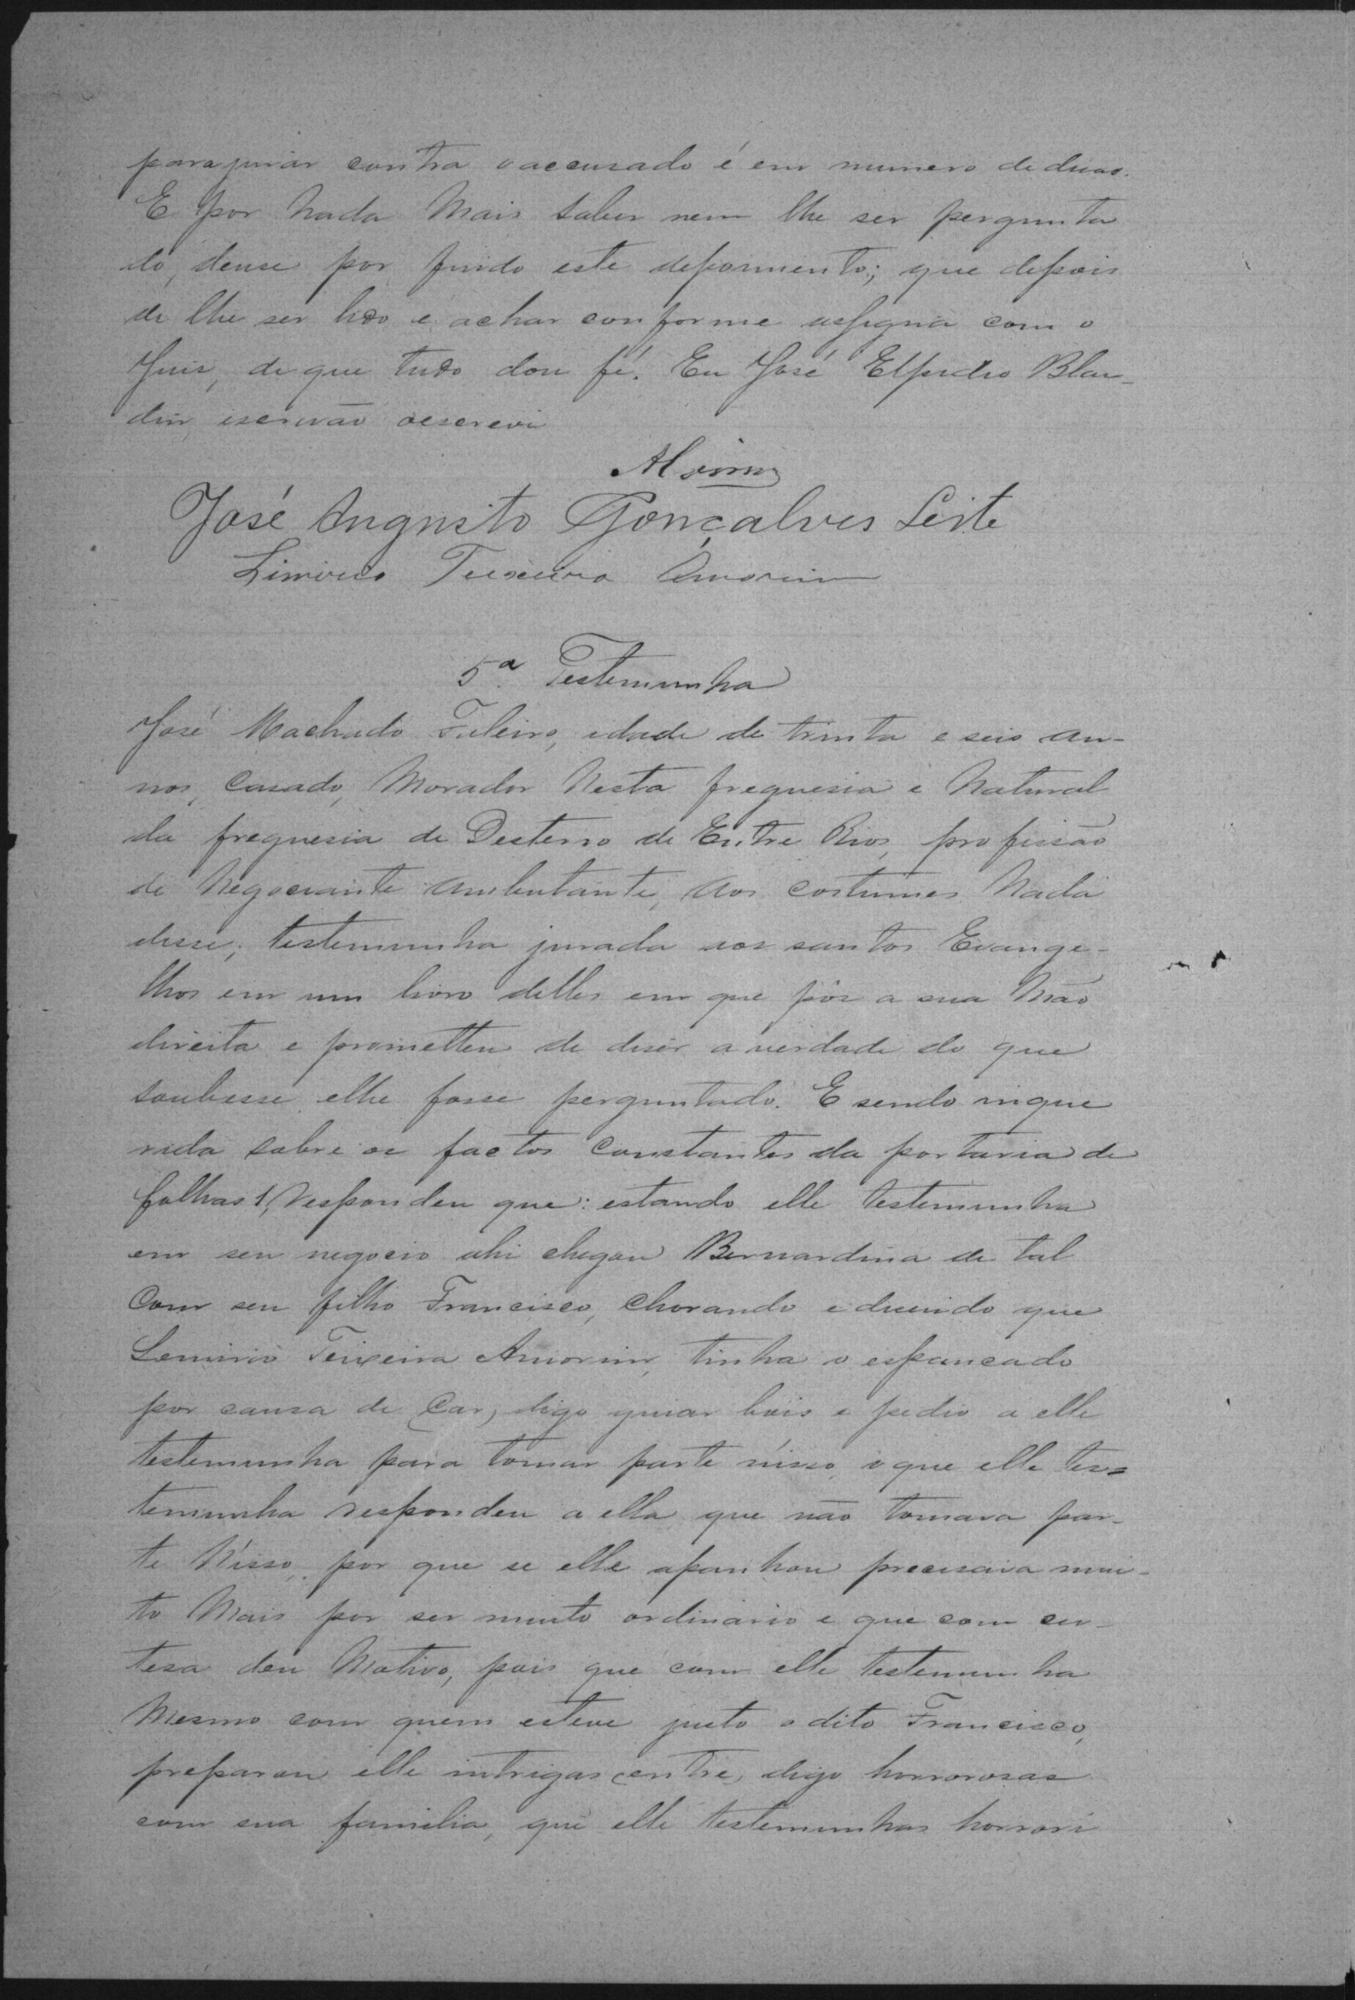 para jurar contra o accusado é em numero de duas.
E por nada mais saber nem lhe ser pergunta
do, deuse por findo este depoimento; que depois
de lhe ser lido e achar conforme assigna com o
Juis, de que tudo dou fé. Eu José Elpidio Blan-
din, escrivão o escrevi
José Augusto Gonçalves Leite
Teixeira Amorim
5ª Testemunha
José Machado idade de trinta e seis an-
nos, casado, morador nesta freguesia e natural
da freguesia de Desterro de Entre Rios, profissão
de negociante ambulante, aos costumes nada
disse; testemunha jurada aos santos Evange-
lhos em um livro delles em que pôs a sua mão
direita e prometteu de diser a verdade do que
soubesse e lhe fosse perguntado. E sendo inque
rida sobre os factos constantes da portaria de
folhas 1, respondeu que: estando elle testemunha
em seu negocio ahi chegou Bernardina de tal
com seu filho Francisco, chorando e disendo que
Teixeira Amorim, tinha o espancado
por causa de car, digo guiar bois e pedio a elle
testemunha para tomar parte nisso, o que elle tes=
temunha respondeu a ella que não tomava par-
te nisso, por que se elle apanhou precisava mui-
to mais por ser muito ordinario e que com cer-
tesa deu motivo, pois que com elle testemunha
mesmo com quem esteve justo o dito Francisco,
preparou elle intrigas entre, digo horrorosas
com sua familia, que elle testemunhas horrori